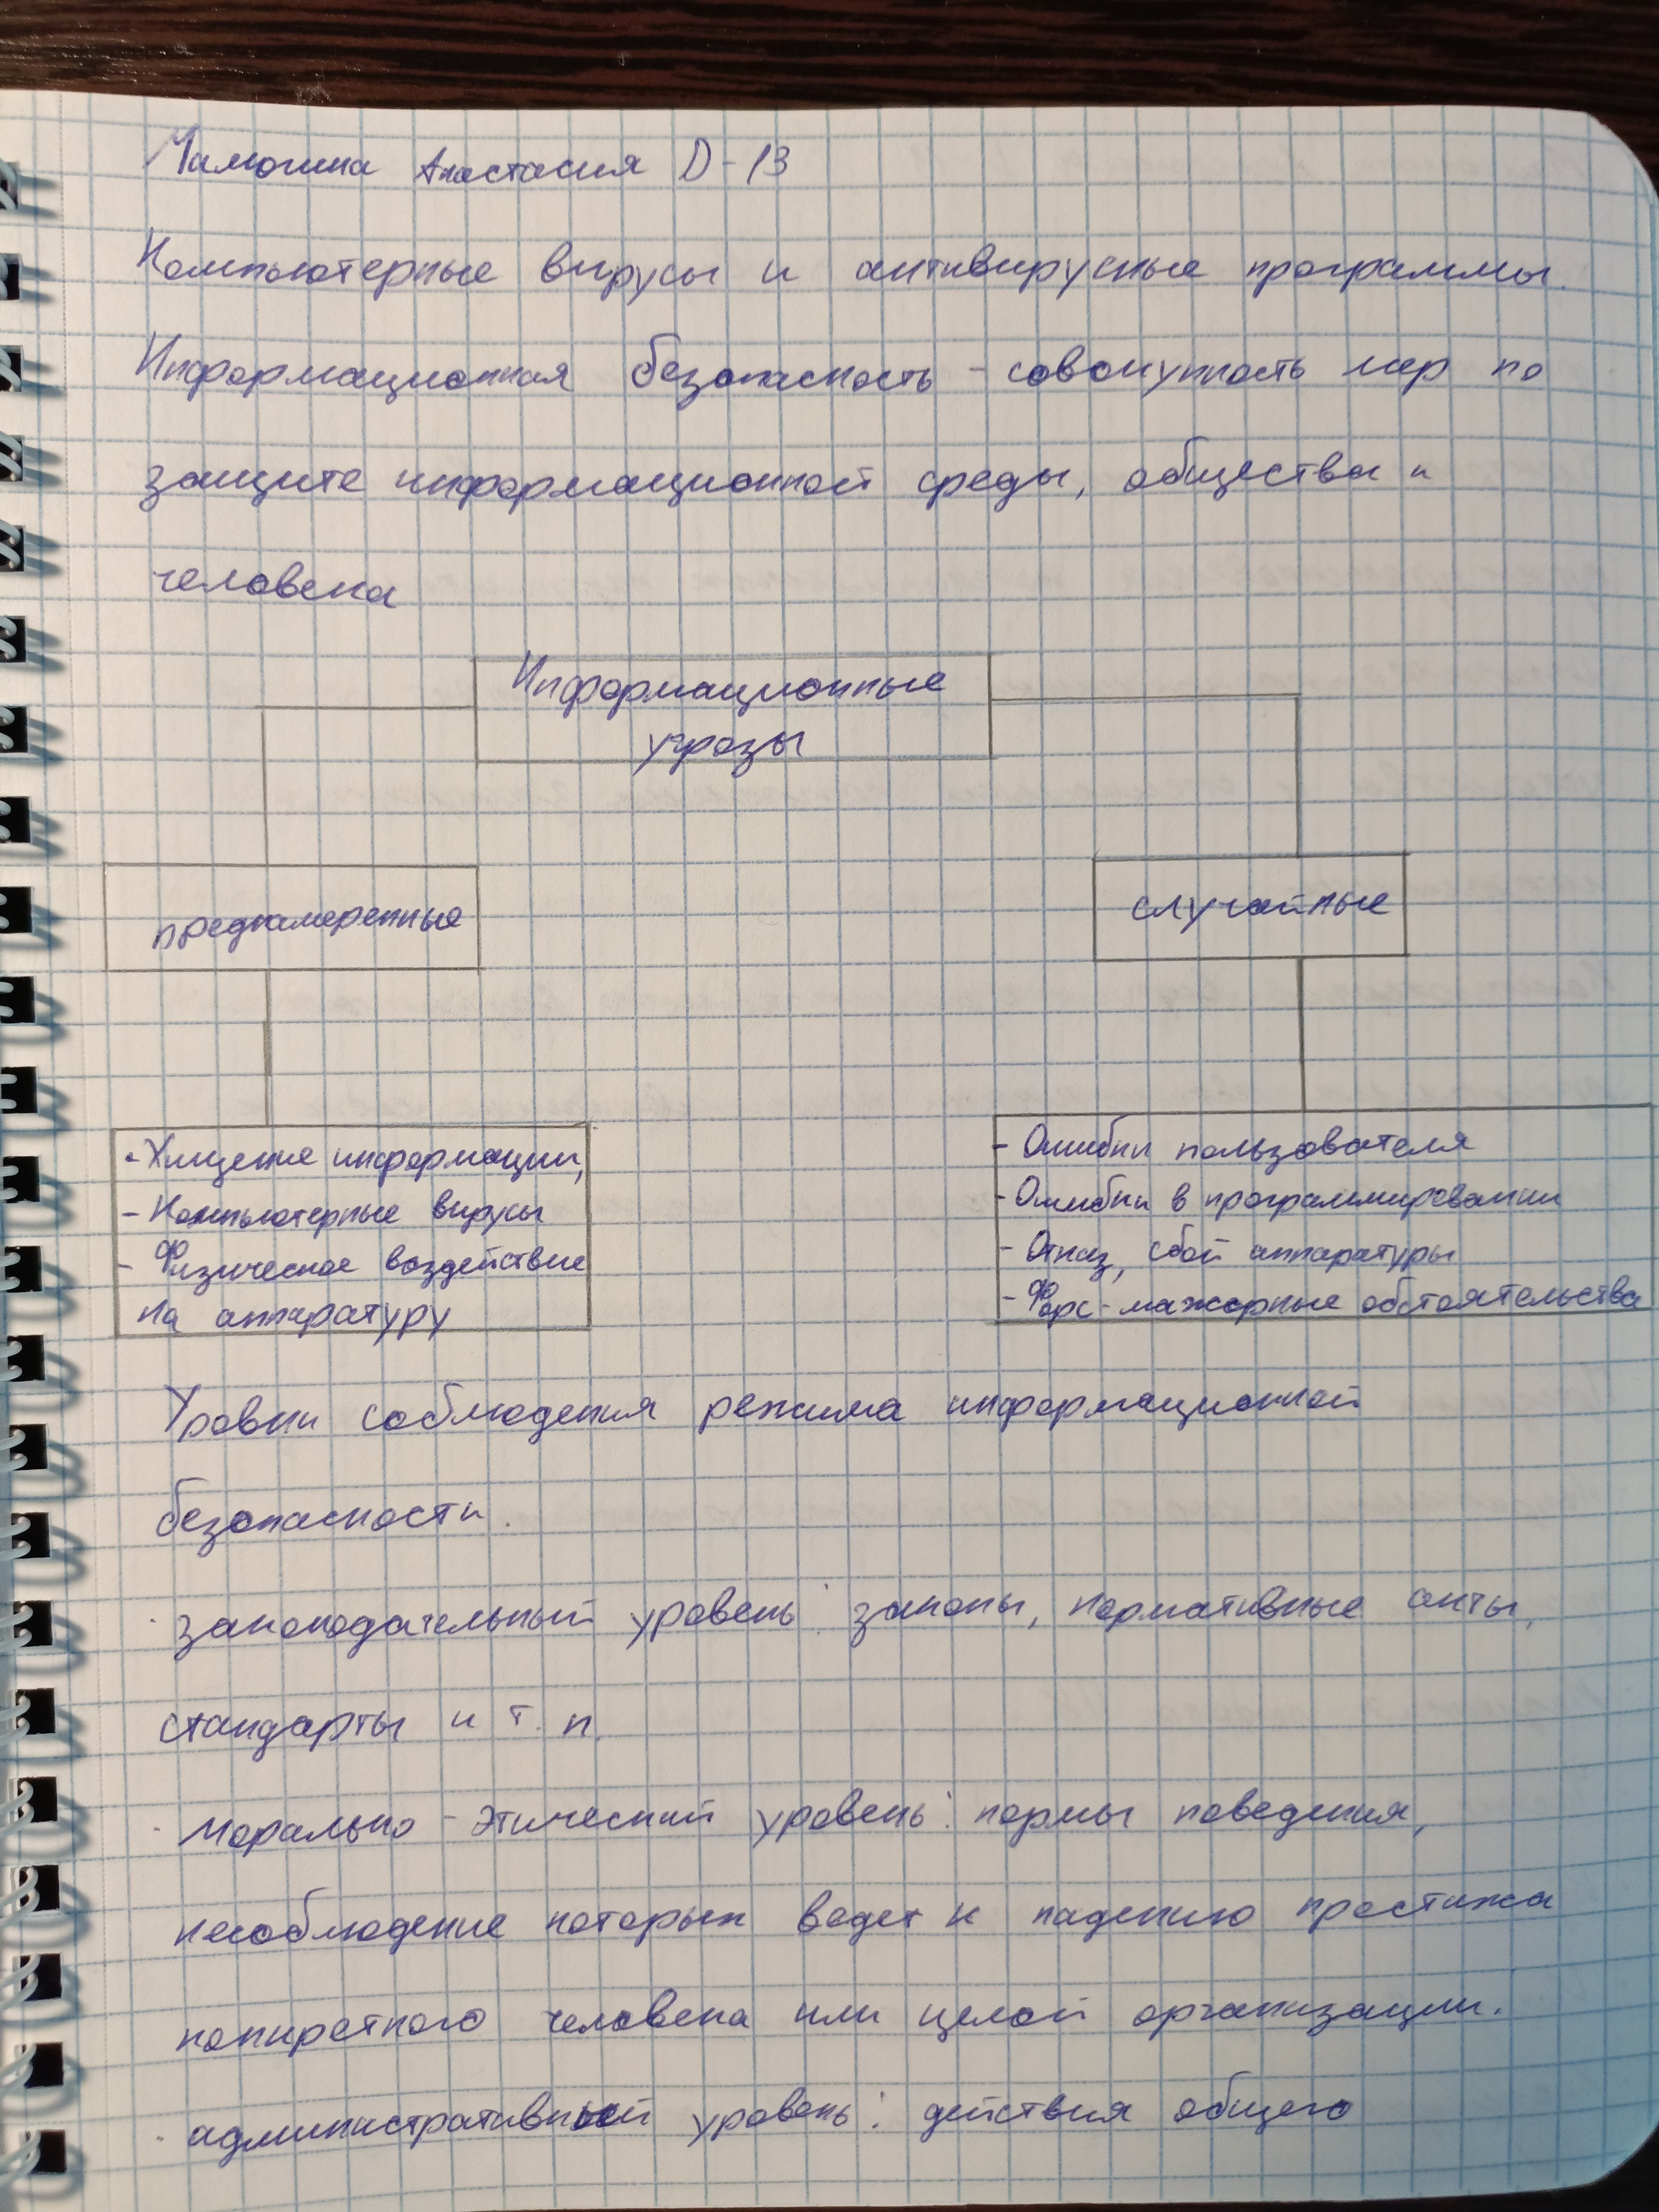 Анастасия D-13
Компьютерные вирусы и антивирусные программы.
Информационная безопасность - совокупность мер по
защите информационной среды, общества и
человека
Информационные
угрозы
преднамеренные
случайные
- Хищение информации,
- Компьютерные вирусы
- Физическое воздействие
на аппаратуру
- Ошибки пользователя
- Ошибки в программировании
- Отказ, сбой аппаратуры
- Форс-мажорные обстоятельства
Уровни соблюдения режима информационной
безопасности.
· законодательный уровень: законы, нормативные акты,
стандарты и т. п.
· морально-этический уровень: нормы поведения,
несоблюдение которых ведет к падению престижа
конкретного человека или целой организации.
· административный уровень: действия общего